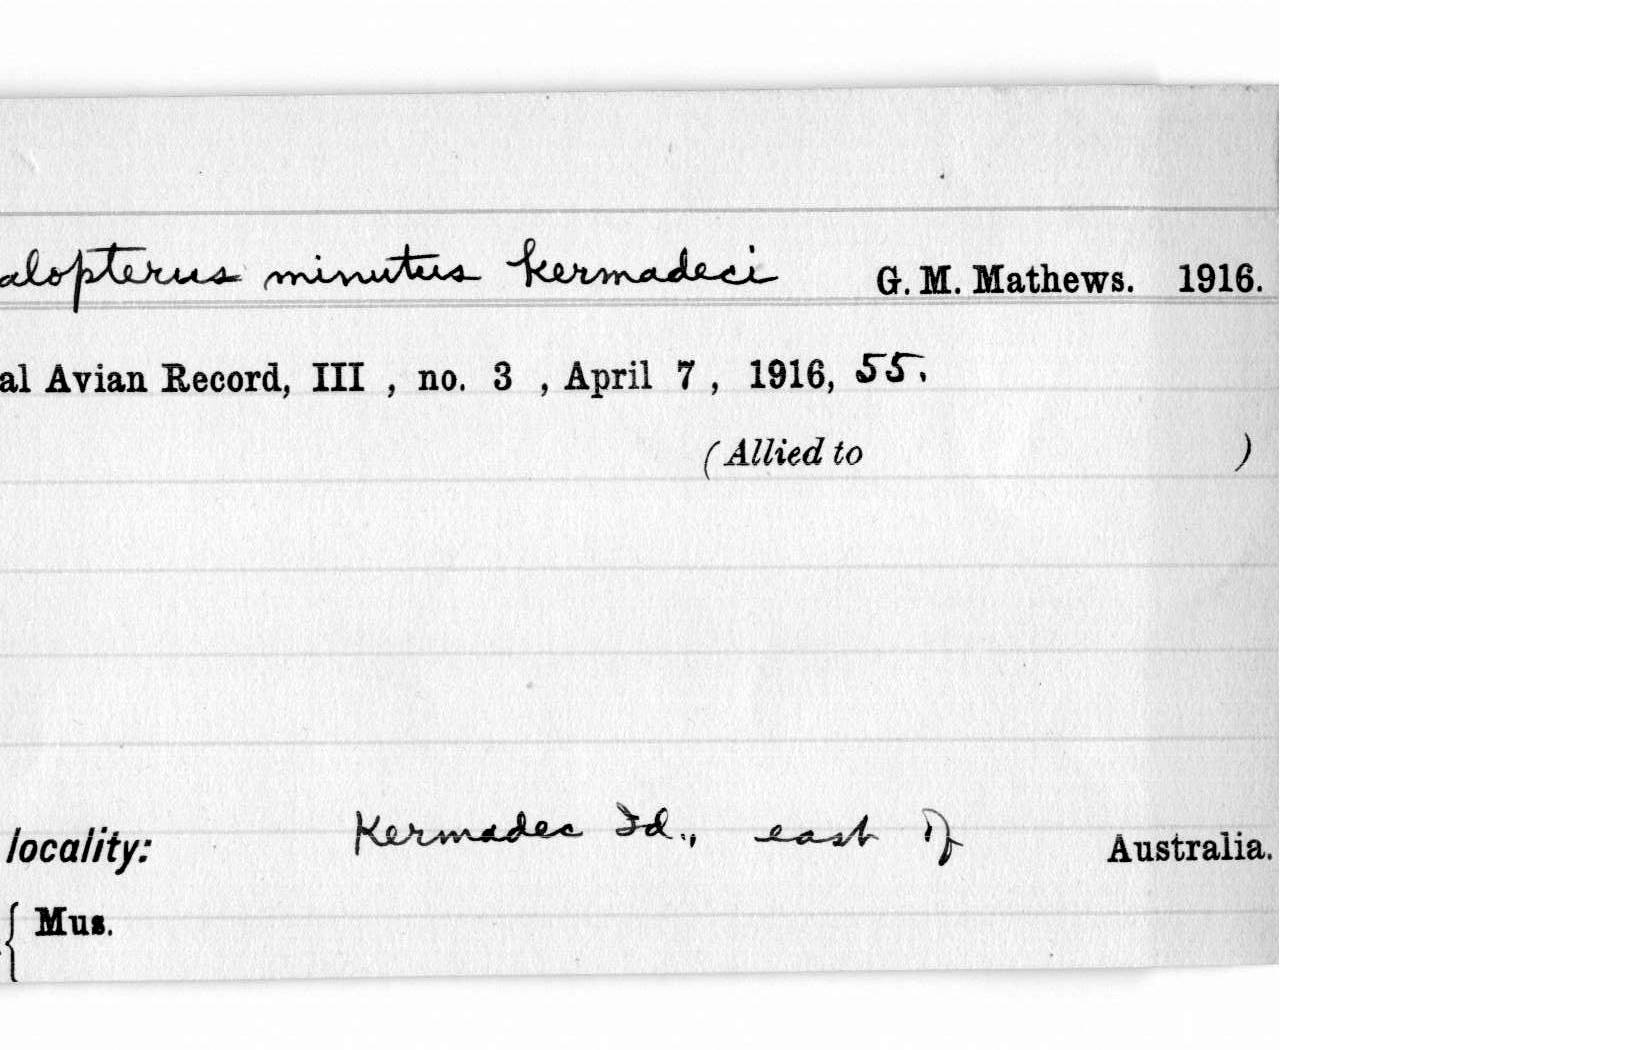 alopterus minutus kermadeci G. M. Mathews. 1916.
al Avian Record, III , no. 3 , April 7 , 1916, 55.
(Allied to )
locality: Kermadec Id., east of Australia.
{ Mus.